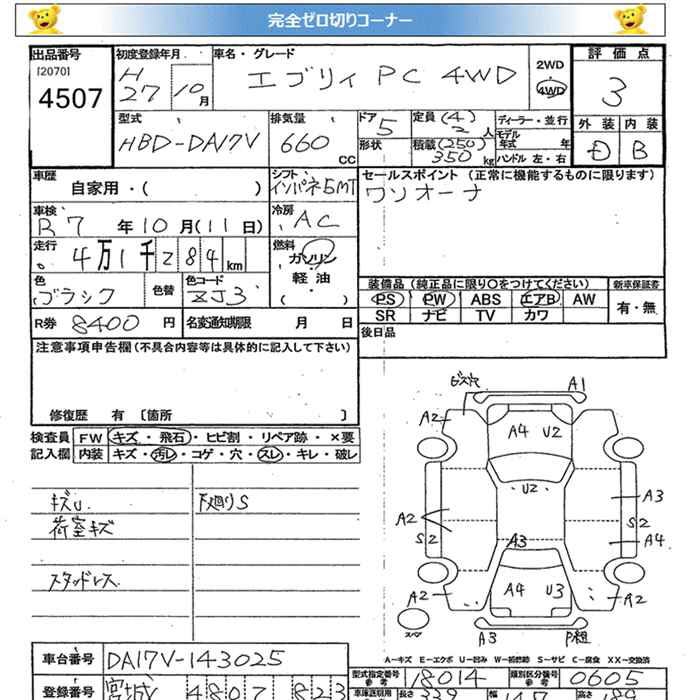 完全ゼロ切りコーナー
出品番号
[2070]
4507
初度登録年月
H
27 10月
車名・グレード
エブリィ PC 4WD
2WD
4WD
評価点
3
外装 内装
D B
型式
HBD-DA17V
排気量
660 cc
ドア 5
形状
定員(4)
2 人
積載(250)
350 kg
ディーラー・並行
モデル
年式 年
ハンドル 左・右
車歴
自家用・( )
シフト
インパネ5MT
セールスポイント(正常に機能するものに限ります)
ワンオーナ
車検
R7 年 10 月(11 日)
冷房
AC
走行
4万1千284 km
燃料
ガソリン・
軽油・
( )
色
ブラック
色替
色コード
ZJ3
装備品(純正品に限り○をつけてください) 新車保証書
PS PW ABS エアB AW 有・無
SR ナビ TV カワ
R券 8400 円 名変通知期限 月 日
後日品
注意事項申告欄(不具合内容等は具体的に記入して下さい)
修復歴 有 〔箇所 〕
検査員 FW キズ・飛石・ヒビ割・リペア跡・×要
記入欄 内装 キズ・汚レ・コゲ・穴・スレ・キレ・破レ
キズU 下廻りS
荷室キズ
スタッドレス
ビス穴 A1
A2 A4 U2
U2
A2 A3 S2
S2 A3 A4
A2 A4 U3 A2
スペア A3 P粗
A-キズ E-エクボ U-凹み W-補修跡 S-サビ C-腐食 XX-交換済
車台番号 DA17V-143025
型式指定番号 参考 18014 類別区分番号 参考 0605
登録番号 宮城 480 823
長さ